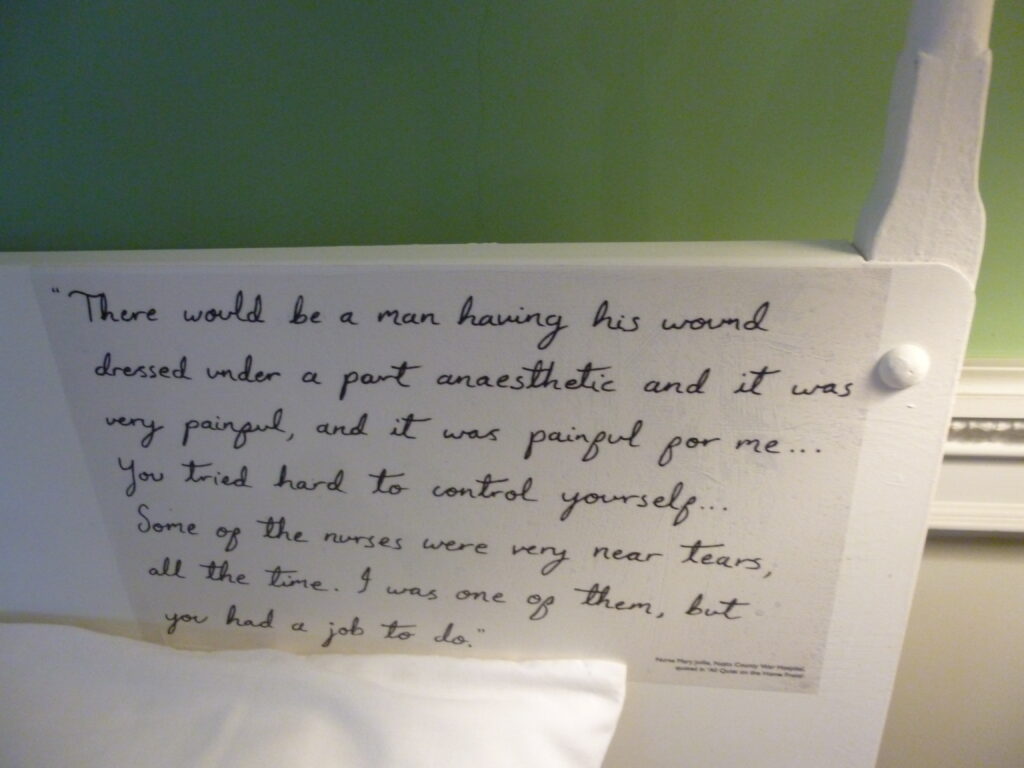 “There would be a man having his wound
dressed under a part anaesthetic and it was
very painful, and it was painful for me...
You tried hard to control yourself...
Some of the nurses were very near tears,
all the time. I was one of them, but
you had a job to do.”
Nurse Mary Jollie, Napsbury County War Hospital,
quoted in 'All Quiet on the Home Front'